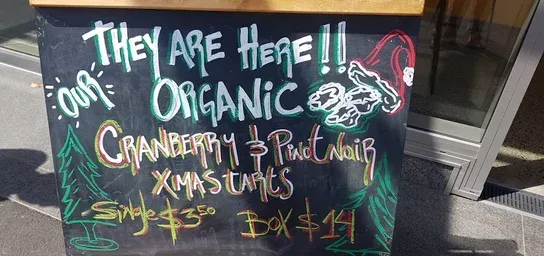 They Are Here!!
Our Organic
Cranberry & Pinot Noir
Xmas tarts
Single $3.50 Box $14